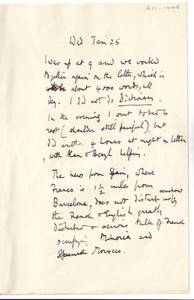 Wd Jan 25
I was up at 9 and we worked
again on the letter, which is
about 4000 words, all
day. I did not do Dictionary.
In the evening I went to bed to
rest (shoulder still painful), but
did 4 hours at night on letter,
with Alan & Beryl helping.
The news from Spain, where
Franco is 1½ miles from
Barcelona, does not disturb me, but
the French & English greatly
disturbed & serious talk of French
occupying Minorca and
Spanish Morocco.